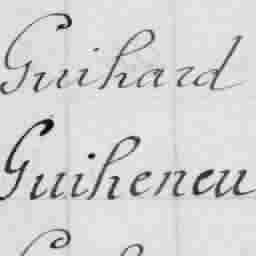 Guihard
Guiheneu